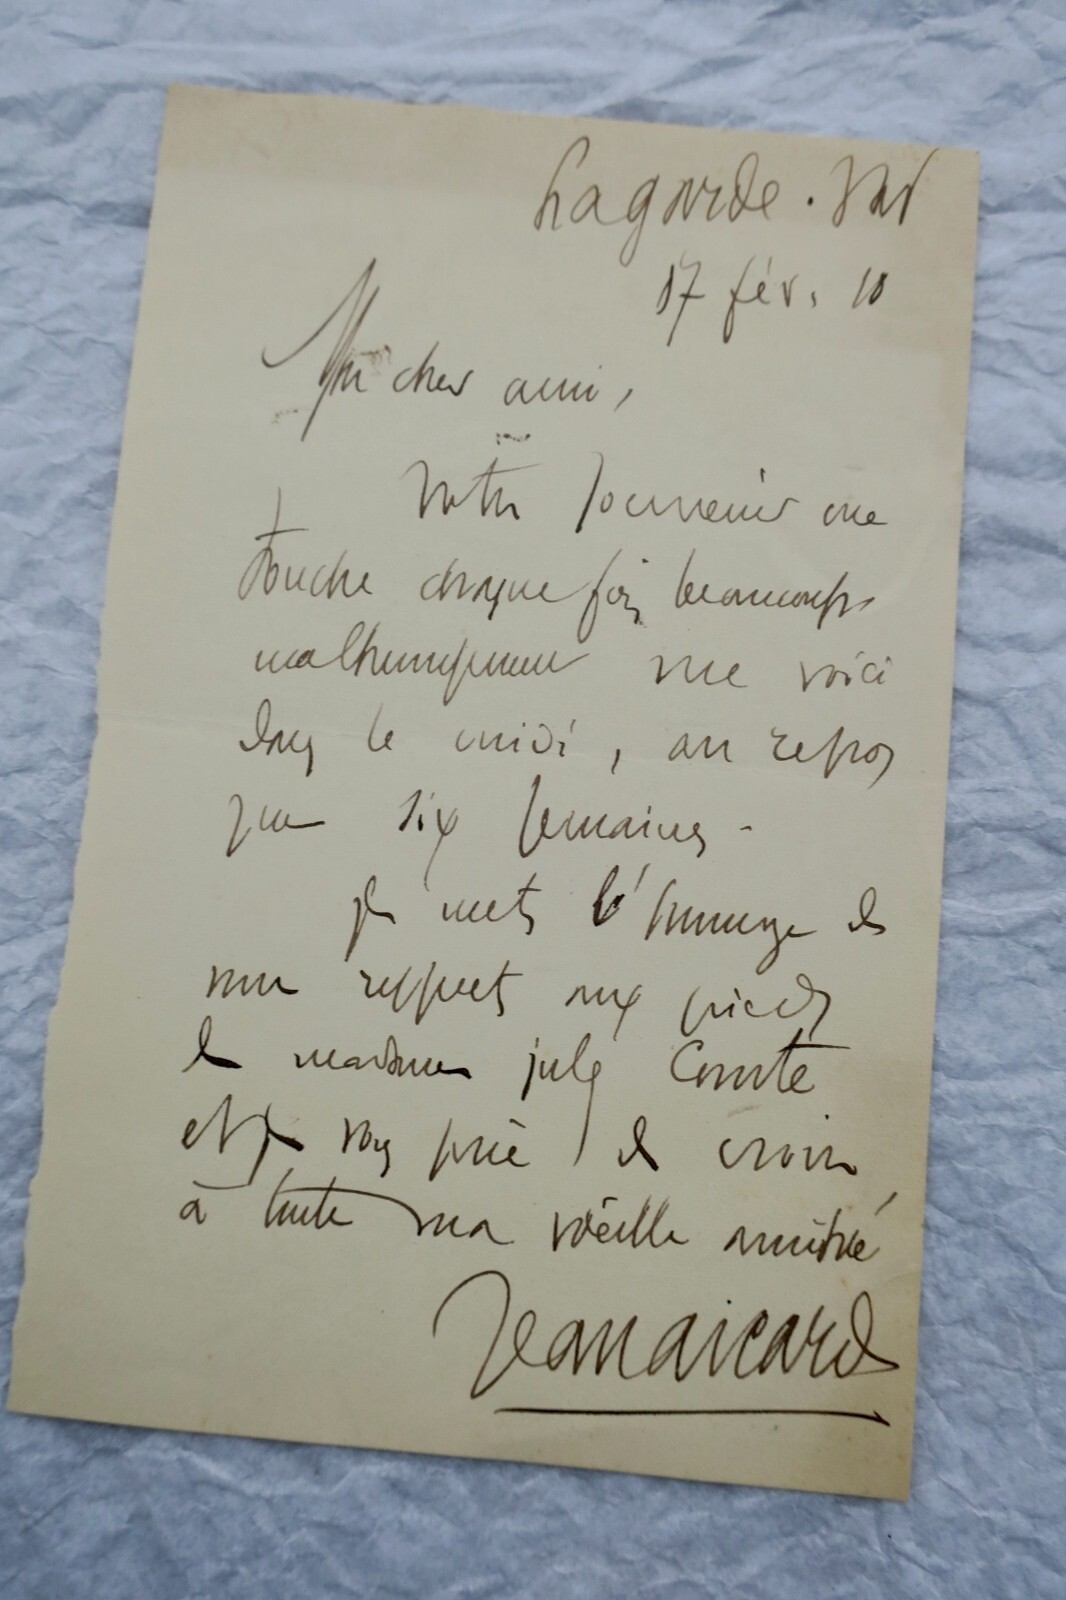 Lagarde. Var
17 fév. 10
Mon cher ami,
Votre souvenir me
touche chaque fois beaucoup.
malheureusement me voici
dans le midi, au repos
pour six semaines -
Je mets l'hommage de
mon respect aux pieds
de madame jules Comte
et je vous prie de croire
à toute ma vieille amitié
Jean aicard